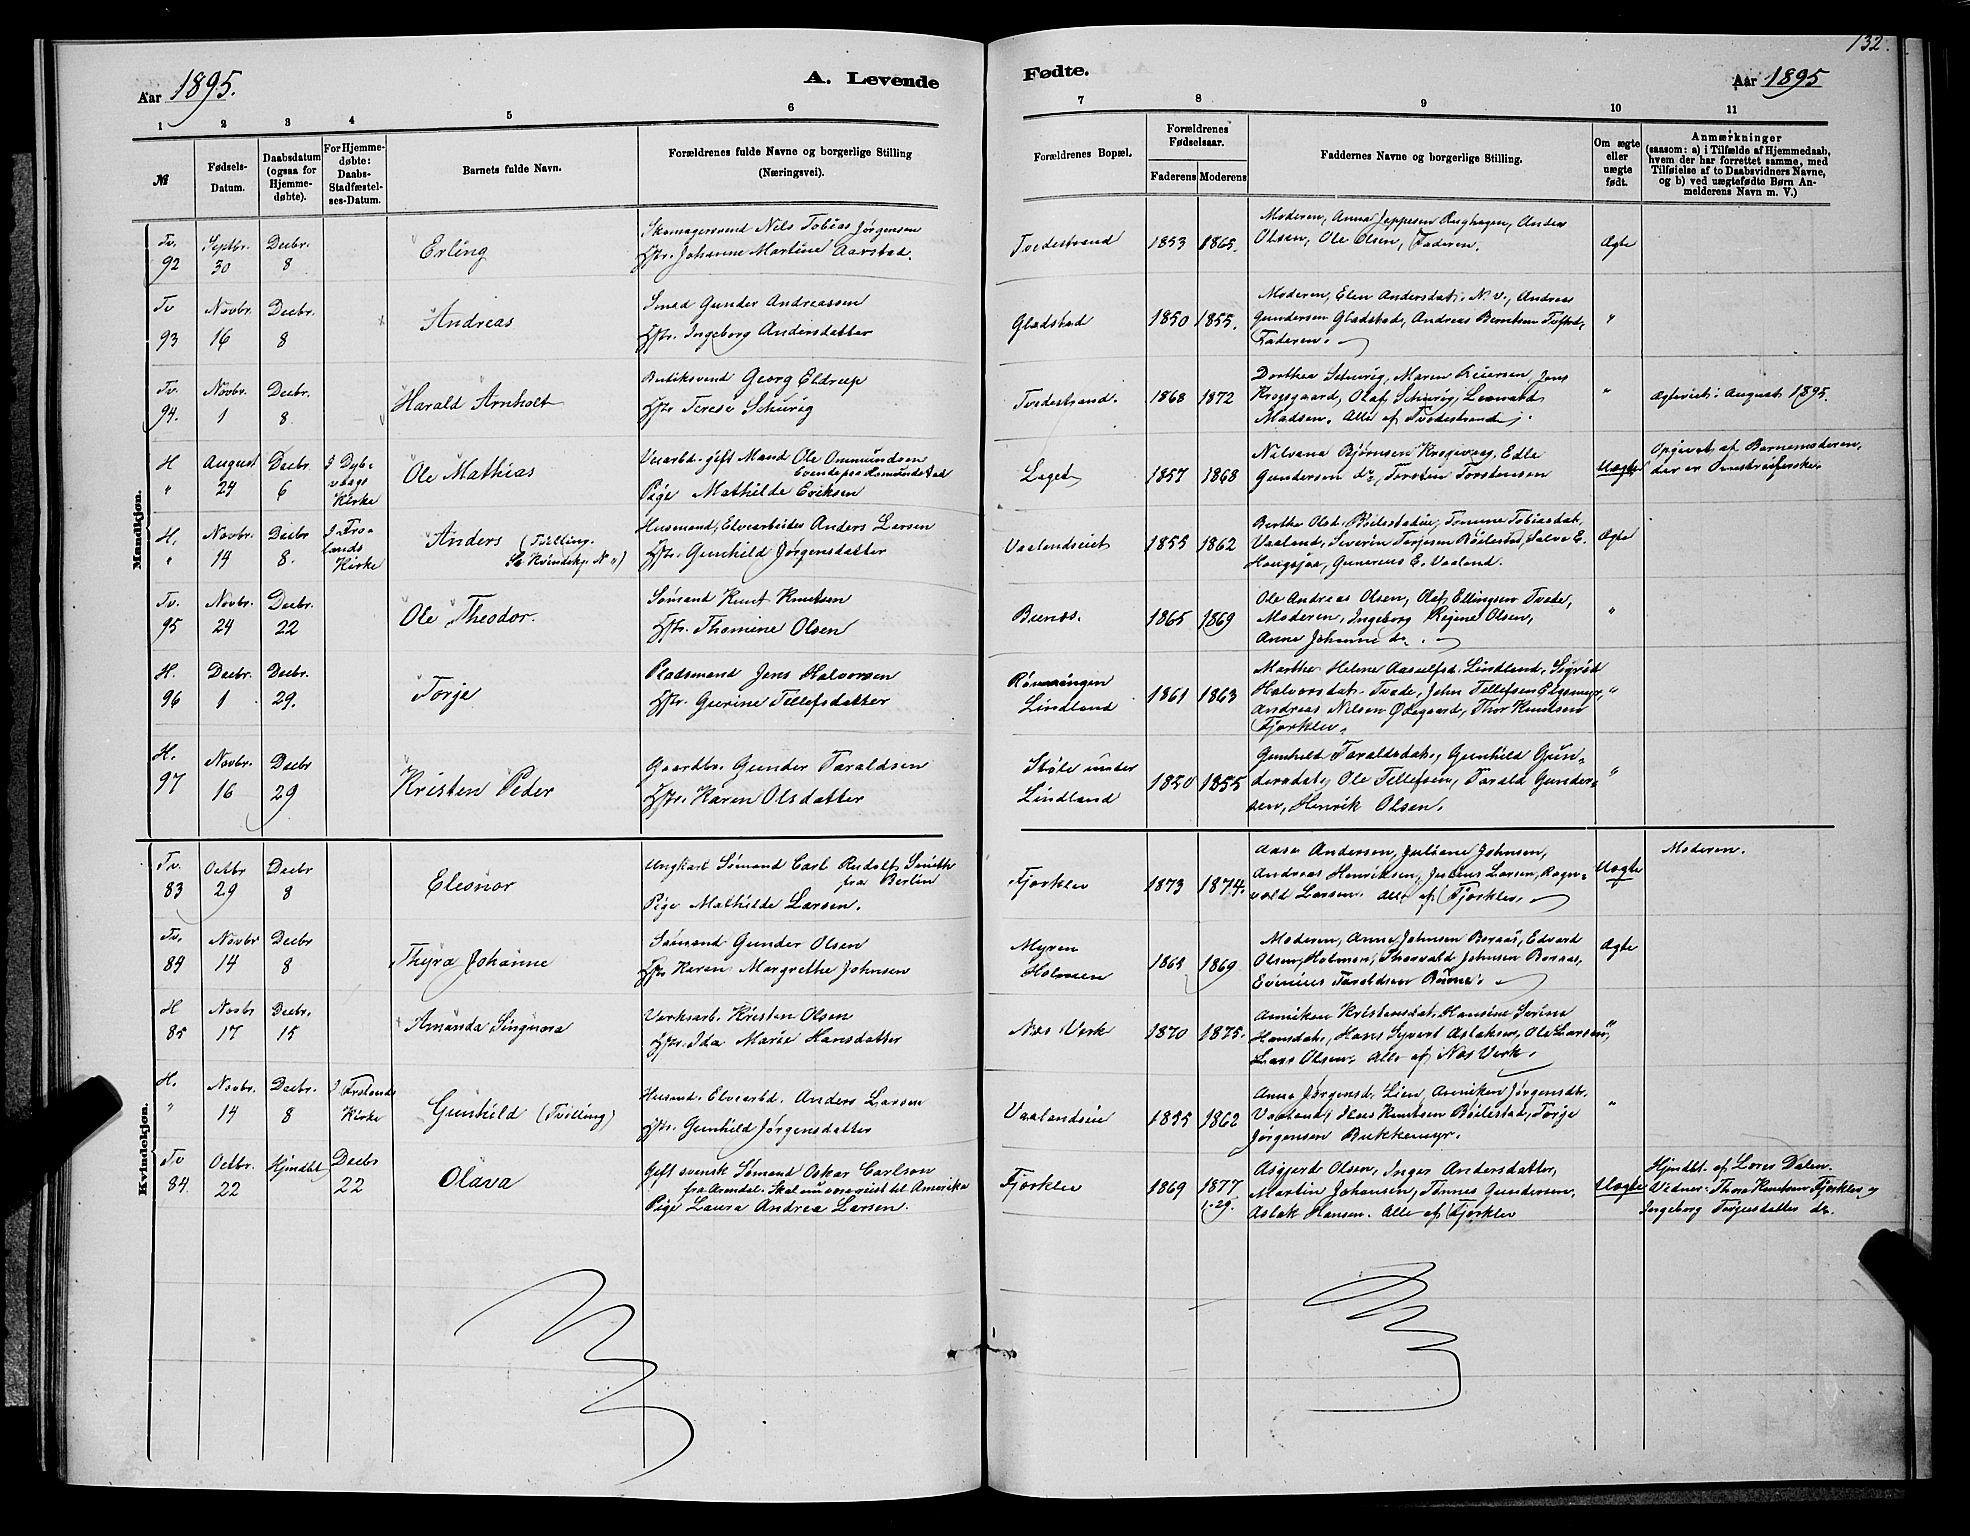 132.
Aar 1895. A. Levende
Fødte. Aar 1895
1 2 3 4 5 6
7 8 9 10 11
№
Fødsels-
Datum.
Daabsdatum
(ogsaa for
Hjemme-
døbte).
For Hjemme-
døbte:
Daabs-
Stadfæstel-
ses-Datum.
Barnets fulde Navn.
Forældrenes fulde Navne og borgerlige Stilling
(Næringsvei).
Forældrenes Bopæl.
Forældrenes
Fødselsaar.
Faderens Moderens
Faddernes Navne og borgerlige Stilling.
Om ægte
eller
uægte
født.
Anmærkninger
(saasom: a) i Tilfælde af Hjemmedaab,
hvem der har forrettet samme, med
Tilføielse af to Daabsvidners Navne,
og b) ved uægtefødte Børn An-
melderens Navn m. V.)
Mandkjøn.
Tv. 92
Septbr. 30
Decbr. 8
Erling
Skomagersvend Nils Tobias Jørgensen
Hstr. Johanne Martine Aarstad.
Tvedestrand
1853 1865.
Moderen, Anna Jeppesen, Anders
Olsen, Ole Olsen, Faderen.
Ægte
Tv 93
Novbr. 16
Decbr. 8
Andreas
Smed Gunder Andreassen
Hstr. Ingeborg Andersdatter
Gladstad
1850 1855.
Moderen, Elen Andersdat. N. v., Andreas
Gundersen Gladstad, Andreas Berntsen
Faderen.
"
Tv. 94.
Novbr. 1
Decbr. 8
Harald Arnholt
Butiksvend Georg Eldrup
Hstr Terese Schurig
Tvedestrand.
1868 1872
Dorthea Schurig, Maren Reiersen, Jens
Krogsgaard, Olaf Schurig, Leonard
Madsen. Alle af Tvedestrand.
"
Ægteviet: August 1895.
H "
August 24
Decbr. 6
I Dyb-
vaags
Kirke
Ole Mathias
Veiarbd. gift Mand Ole Ommundsen
Pige Mathilde Eriksen
Laget
1857 1868
Nilvana Bjørnsen Krogevaag, Edle
Gundersen do, Torsten Torstensen
Uægte
Opgivet af Barnemoderen,
der er
H. "
Novbr. 14
Decbr 8.
I Fro-
lands
Kirke
Anders (Tvilling.
Se Kvindekj. N ")
Husmand, Elvearbeider Anders Larsen
Hstr. Gunhild Jørgensdatter
Vaalandseiet
1855 1862
Berthe Olsd. Bøilestadeie, Tomine Tobiasdat.
Vaaland, Severin Torjesen Bøilestad, Salve E.
Hougsjaa, Gunerius E. Vaaland.
Ægte
Tv. 95
Novbr. 24
Decbr. 22
Ole Theodor.
Sømand Knut Knutsen
Hstr. Thomine Olsen
1865 1869
Ole Andreas Olsen, Olaf Ellingsen Tvede,
Moderen, Ingeborg Regine Olsen,
Anne Johanne do.
"
H. 96
Decbr. 1
Decbr. 29.
Torje
Pladsmand Jens Halvorsen
Hstr. Gurine Tellefsdatter
Rønningen
Lindland
1861 1863
Marthe Helene Aasulfsd. Lindland, Sigrid
Halvorsdat. Tvede, John Tellefsen Elgemyr,
Andreas Nilsen Ødegaard, Thor Knudsen
Fjorklev.
"
H. 97
Novbr. 16
Decbr 29
Kristen Peder
Gaardbr. Gunder Taraldsen
Hstr. Karen Olsdatter
Støle under
Lindland
1820 1855
Gunhild Taraldsdat., Gunhild Gun-
dersdat., Ole Tellefsen, Tarald Gunder-
sen, Henrik Olsen.
"
Kvindekjøn.
Tv. 83
Octbr 29
Decbr 8
Eleonor
Ungkarl Sømand Carl Rudolf Smith
fra Berlin
Pige Mathilde Larsen.
Fjorklev
1873 1874.
Aase Andersen, Juliane Johnsen,
Andreas Henriksen, Julius Larsen, Ragn-
vald Larsen. Alle af Fjorklev.
Uægte
Moderen.
Tv. 84
Novbr 14
Decbr 8
Thyra Johanne
Sømand Gunder Olsen
Hstr Karen Margrethe Johnsen
Myren
Holmen
1868 1869
Moderen, Anne Johnsen Boraas, Edvard
Olsen, Holmen, Thorvald Johnsen Boraas,
Evinius Taraldsen
Ægte
H 85
Novbr 17
Decbr. 15
Amanda Singnora
Verksarb. Kristen Olsen
Hstr. Ida Marie Hansdatter
Næs Verk
1870 1875.
Anniken Kristensdat., Hansine Serine
Hansdat., Hans Syvert Aslaksen, Ole Larsen,
Lars Olsen, Alle af Næs Verk.
"
H. "
Novbr. 14
Decbr. 8
I Frolands
Kirke
Gunhild (Tvilling)
Husmd. Elvearbd. Anders Larsen
Hstr. Gunhild Jørgensdatter
Vaalandseie
1855 1862
Anna Jørgensd. Lien, Anniken Jørgensdtr.
Vaaland, Hans Knutsen Bøilestad, Torje
Jørgensen Bukkemyr.
"
Tv 84.
Octbr. 22
Hjmdbt.
Decbr 22
Olava
Gift svensk Sømand Oskar Carlson
fra Arendal. Skal nu være reist til Amerika
Pige Laura Andrea Larsen.
Fjorklev
1869 1877
Asgjerd Olsen, Inger Andersdatter,
Martin Johansen, Tønnes Gundersen,
Aslak Hansen. Alle af Fjorklev
Uægte
Hjmdbt. af Lars Dalen.
Vidner: Thora Knutsen Fjorklev og
Ingeborg Torgersdatter do.